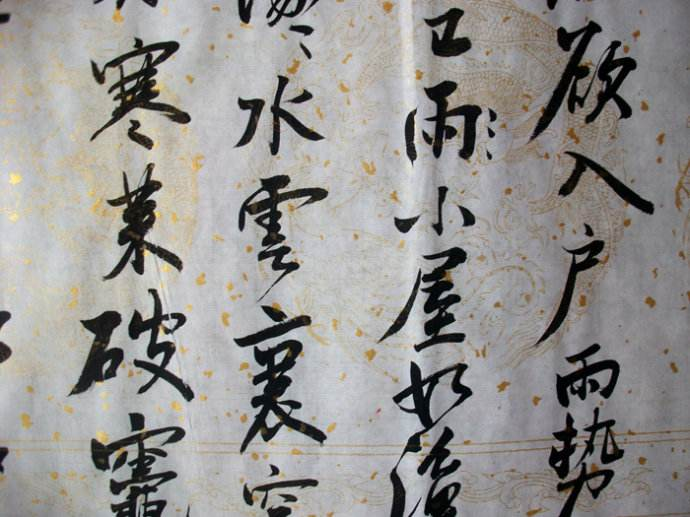 欲入户雨势
已雨小屋如漁
濛々水雲裏空
寒菜破竈